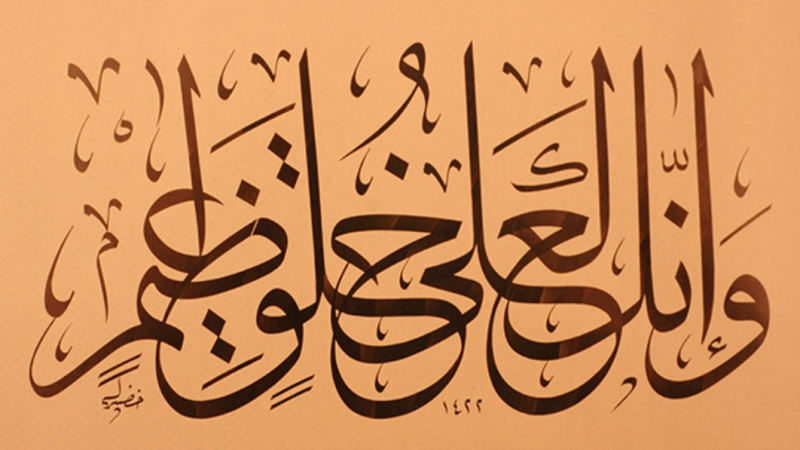 وَإِنَّكَ لَعَلى خُلُقٍ عَظِيمٍ
١٤٢٢